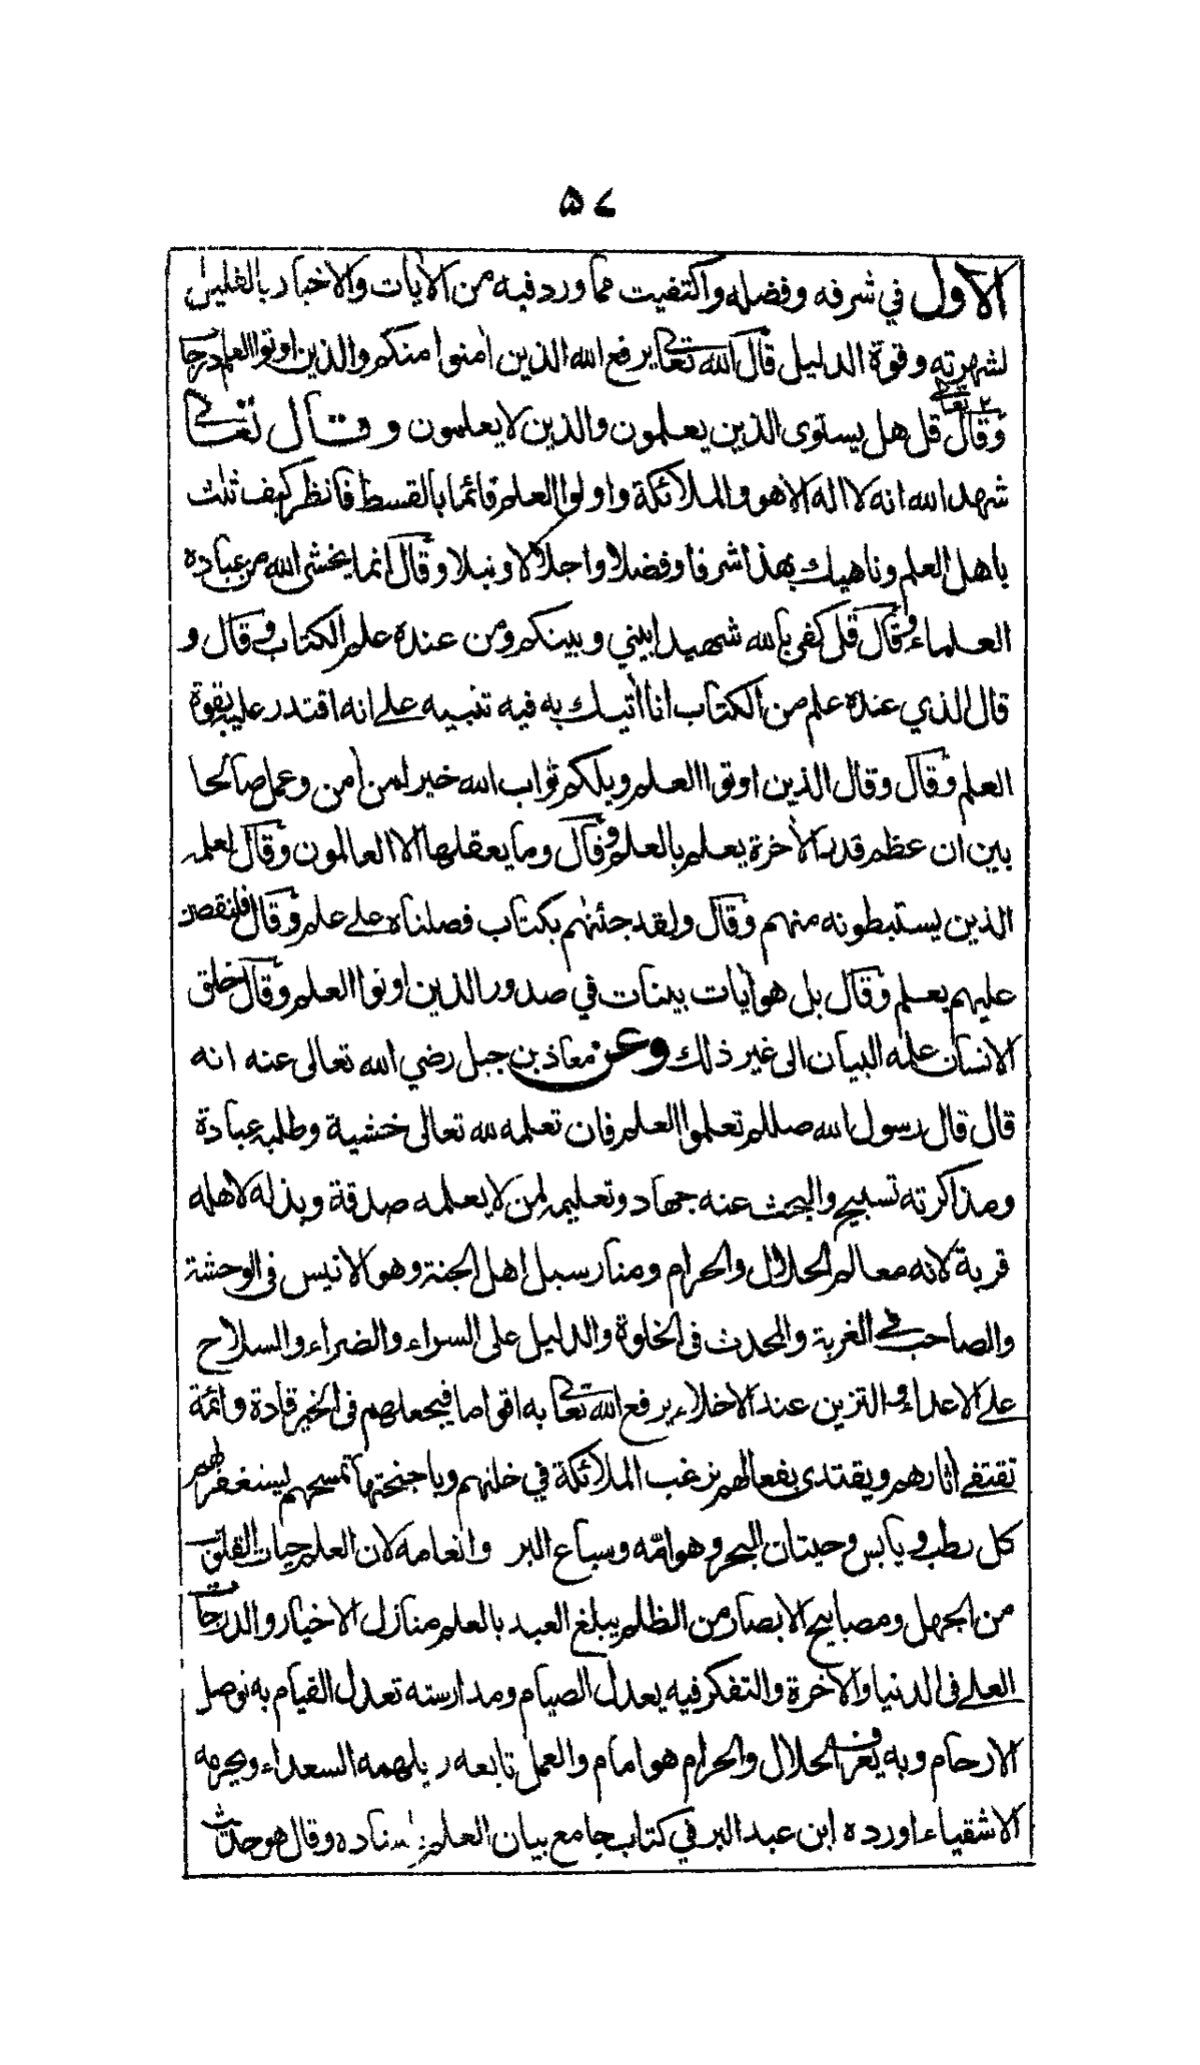 ۵۷
الاول في شرفه وفضله واكتفيت مما ورد فيه من الآيات والاخبار بالقليل
لشهرته وقوة الدليل قال الله تعالى يرفع الله الذين امنوا منكم والذين اوتوا العلم درجا
وقال تعالى قل هل يستوى الذين يعلمون والذين لا يعلمون وقال تعالى
شهد الله انه لا اله الا هو والملائكة واولوا العلم قائما بالقسط فانظر كيف ثلث
باهل العلم وناهيك بهذا شرفا وفضلا واجلالا ونبلا وقال انما يخشى الله من عباده
العلماء وقال قل كفى بالله شهيدا بيني وبينكم ومن عنده علم الكتاب وقال و
قال الذي عنده علم من الكتاب انا اتيك به فيه تنبيه على انه اقتدر عليه بقوة
العلم وقال وقال الذين اوتوا العلم ويلكم ثواب الله خير لمن امن وعمل صالحا
بين ان عظم قدر الآخرة يعلم بالعلم وقال وما يعقلها الا العالمون وقال لعلمه
الذين يستبطونه منهم وقال ولقد جئنهم بكتاب فصلناه على علم وقال فلنقصن
عليهم بعلم وقال بل هو آيات بينات في صدور الذين اوتوا العلم وقال خلق
الانسان علمه البيان الى غير ذلك وعن معاذ بن جبل رضي الله تعالى عنه انه
قال قال رسول الله صللم تعلموا العلم فان تعلمه لله تعالى خشية وطلبه عبادة
ومذاكرته تسبيح والبحث عنه جهاد وتعليمه لمن لا يعلمه صدقة وبذله لاهله
قربة لانه معالم الحلال والحرام ومنار سبل اهل الجنة وهو الانيس فى الوحشة
والصاحب في الغربة والمحدث فى الخلوة والدليل على السراء والضراء والسلاح
على الاعداء والتزين عند الاخلاء يرفع الله تعالى به اقواما فيجعلهم فى الخير قادة وائمة
تقتفى اثارهم ويقتدى بفعالهم نرغب الملائكة في خلتهم وباجنحتها تمسحهم يستغفر لهم
كل رطب ويابس وحيتان البحر وهوامه وسباع البر وانعامه لان العلم حيات القلوب
من الجهل ومصابيح الابصار من الظلم يبلغ العبد بالعلم منازل الاخيار والدرجات
العلى فى الدنيا والآخرة والتفكر فيه يعدل الصيام ومدارسته تعدل القيام به توصل
الارحام وبه يعرف الحلال والحرام هو امام والعمل تابعه ويلهمه السعداء ويحرمه
الاشقياء اورده ابن عبد البر في كتاب جامع بيان العلم باسناده وقال هو حديث